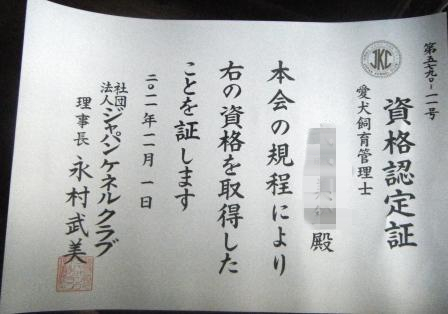 第五七九〇-一一号
JKC
資格認定証
愛犬飼育管理士
殿
本会の規程により
右の資格を取得した
ことを証します
二〇一一年一一月一日
社団法人ジャパンケネルクラブ
理事長 永村武美